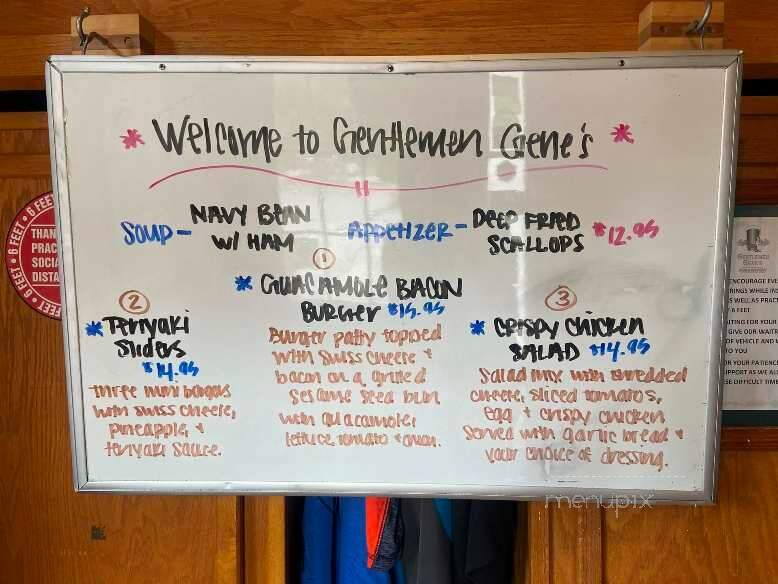 * Welcome to Gentlemen Gene's *
Soup - NAVY BEAN W/ HAM
Appetizer - DEEP FRIED SCALLOPS $12.95
1
* GUACAMOLE BACON BURGER $15.95
Burger patty topped
with swiss cheese +
bacon on a grilled
sesame seed bun
with guacamole,
lettuce, tomato + onion.
2
* Teriyaki
Sliders
$14.95
three mini burgers
with swiss cheese,
pineapple, +
teriyaki sauce.
3
* CRISPY CHICKEN
SALAD $14.95
Salad mix with shredded
cheese, sliced tomatos,
egg + crispy chicken
served with garlic bread +
your choice of dressing.
6 FEET • 6 FEET • 6 FEET
THAN
PRAC
SOCIA
DISTA
GENTLEMEN
GENE'S
ENCOURAGE EVE
RINGS WHILE INS
AS WELL AS PRACT
F A FEET
AITING FOR YOUR
GIVE OUR WAITR
OF VEHICLE AND W
TO YOU
R YOUR PATIENCE
UPPORT AS WE AL
ESE DIFFICULT TIME
menupix